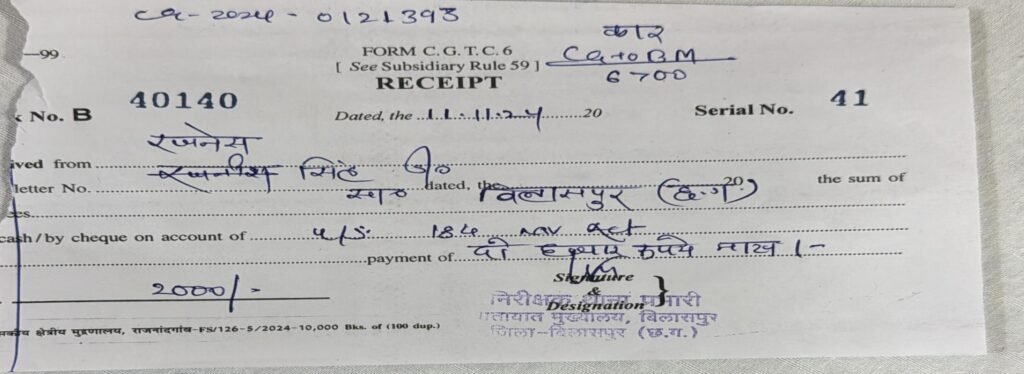 CG-2024-0121393
-99
FORM C.G.T.C.6
[ See Subsidiary Rule 59 ]
RECEIPT
कार
CG10BM
6700
No. B 40140
Dated, the 11.11.24 20
Serial No. 41
रजनेस
ived from रजनीश सिंह
letter No. dated, the 20 the sum of
बिलासपुर (छ.ग.)
cash/by cheque on account of u/s. 184 mv act
payment of दो हजार रुपये मात्र /-
2000/-
Signature
&
Designation
निरीक्षक थाना प्रभारी
यातायात मुख्यालय, बिलासपुर
जिला-बिलासपुर (छ.ग.)
क्षेत्रीय मुद्रणालय, राजनांदगांव-FS/126-5/2024-10,000 Bks. of (100 dup.)